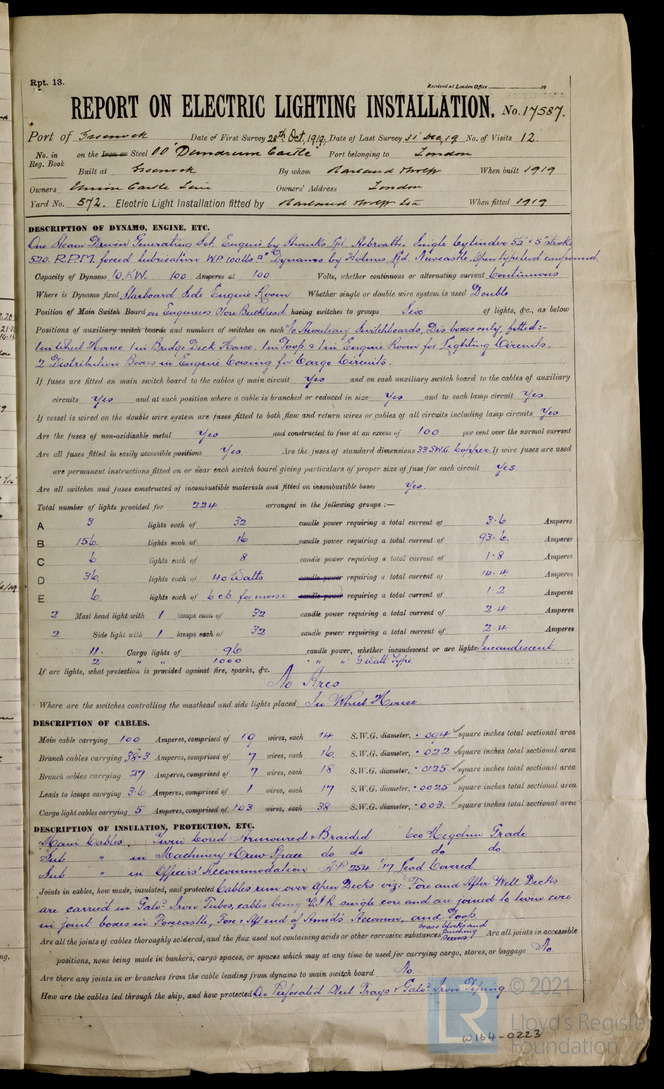 Rpt. 13.
Received at London Office 19
REPORT ON ELECTRIC LIGHTING INSTALLATION. No. 17587.
Port of Greenock Date of First Survey 28th Oct, 1919, Date of Last Survey 31 Dec, 19 No. of Visits 12.
No. in Reg. Book on the Iron or Steel "Dundrum Castle" Port belonging to London
Built at Greenock By whom Harland & Wolff When built 1919
Owners Union Castle Line Owners' Address London
Yard No. 572. Electric Light Installation fitted by Harland & Wolff Ltd When fitted 1919
DESCRIPTION OF DYNAMO, ENGINE, ETC.
One Steam Driven Generating Set. Engine by Shanks, Arbroath. Single Cylinder 5" stroke
520. R.P.M. forced lubrication W.P. 100 lbs Dynamo by Holmes, Newcastle, type compound
Capacity of Dynamo 10. K.W. 100 Amperes at 100 Volts, whether continuous or alternating current Continuous
Where is Dynamo fixed Starboard Side Engine Room Whether single or double wire system is used Double
Position of Main Switch Board on Engineers Store Bulkhead having switches to groups Six of lights, &c., as below
Positions of auxiliary switch boards and numbers of switches on each No Auxiliary Switchboards, Dis boxes only, fitted:-
1 in Wheel House 1 in Bridge Deck House. 1 in Poop & 1 in Engine Room for Lighting Circuits.
2 Distribution Boxes in Engine Casing for Cargo Circuits.
If fuses are fitted on main switch board to the cables of main circuit Yes and on each auxiliary switch board to the cables of auxiliary
circuits Yes and at each position where a cable is branched or reduced in size Yes and to each lamp circuit Yes
If vessel is wired on the double wire system are fuses fitted to both flow and return wires or cables of all circuits including lamp circuits Yes
Are the fuses of non-oxidizable metal Yes and constructed to fuse at an excess of 100 per cent over the normal current
Are all fuses fitted in easily accessible positions Yes. Are the fuses of standard dimensions 33 SWG Copper. If wire fuses are used
are permanent instructions fitted on or near each switch board giving particulars of proper size of fuse for each circuit Yes.
Are all switches and fuses constructed of incombustible materials and fitted on incombustible bases Yes.
Total number of lights provided for 224 arranged in the following groups :—
A 3 lights each of 32 candle power requiring a total current of 3.6 Amperes
B 156 lights each of 16 candle power requiring a total current of 93.6 Amperes
C 6 lights each of 8 candle power requiring a total current of 1.8 Amperes
D 36 lights each of 40 Watts candle power requiring a total current of 14.4 Amperes
E 6 lights each of 6 c.p. for morse candle power requiring a total current of 1.2 Amperes
2 Mast head light with 1 lamps each of 32 candle power requiring a total current of 2.4 Amperes
2 Side light with 1 lamps each of 32 candle power requiring a total current of 2.4 Amperes
11. Cargo lights of 96 candle power, whether incandescent or arc lights Incandescent.
2 " " 1000 " " ½ Watt Type
If arc lights, what protection is provided against fire, sparks, &c.
No Arcs
Where are the switches controlling the masthead and side lights placed In Wheel House
DESCRIPTION OF CABLES.
Main cable carrying 100 Amperes, comprised of 19 wires, each 14 S.W.G. diameter, .094 square inches total sectional area
Branch cables carrying 38.3 Amperes, comprised of 7 wires, each 16 S.W.G. diameter, .022 square inches total sectional area
Branch cables carrying 27 Amperes, comprised of 7 wires, each 18 S.W.G. diameter, .0125 square inches total sectional area
Leads to lamps carrying 3.6 Amperes, comprised of 1 wires, each 17 S.W.G. diameter, .0025 square inches total sectional area
Cargo light cables carrying 5 Amperes, comprised of 103 wires, each 38 S.W.G. diameter, .003. square inches total sectional area
DESCRIPTION OF INSULATION, PROTECTION, ETC.
Main Cables. Twin Cored Armoured & Braided 600 Megohm Grade
Sub " in Machinery & Crew Space do do do do.
Sub " in Officers' Accommodation Lead Covered
Joints in cables, how made, insulated, and protected Cables run over Open Decks viz: Fore and After Well Decks
are carried in Galvd Iron Tubes, cables being single core and are joined to twin core
in joint boxes in Forecastle, Fore & Aft end of Amids Accomm, and Poop
Are all the joints of cables thoroughly soldered, and the flux used not containing acids or other corrosive substances Are all joints in accessible
positions, none being made in bunkers, cargo spaces, or spaces which may at any time be used for carrying cargo, stores, or baggage No
Are there any joints in or branches from the cable leading from dynamo to main switch board No.
How are the cables led through the ship, and how protected On Perforated Steel Trays & Galvd Iron Tubing
© 2021
LR
Lloyd's Register
Foundation
W164-0223